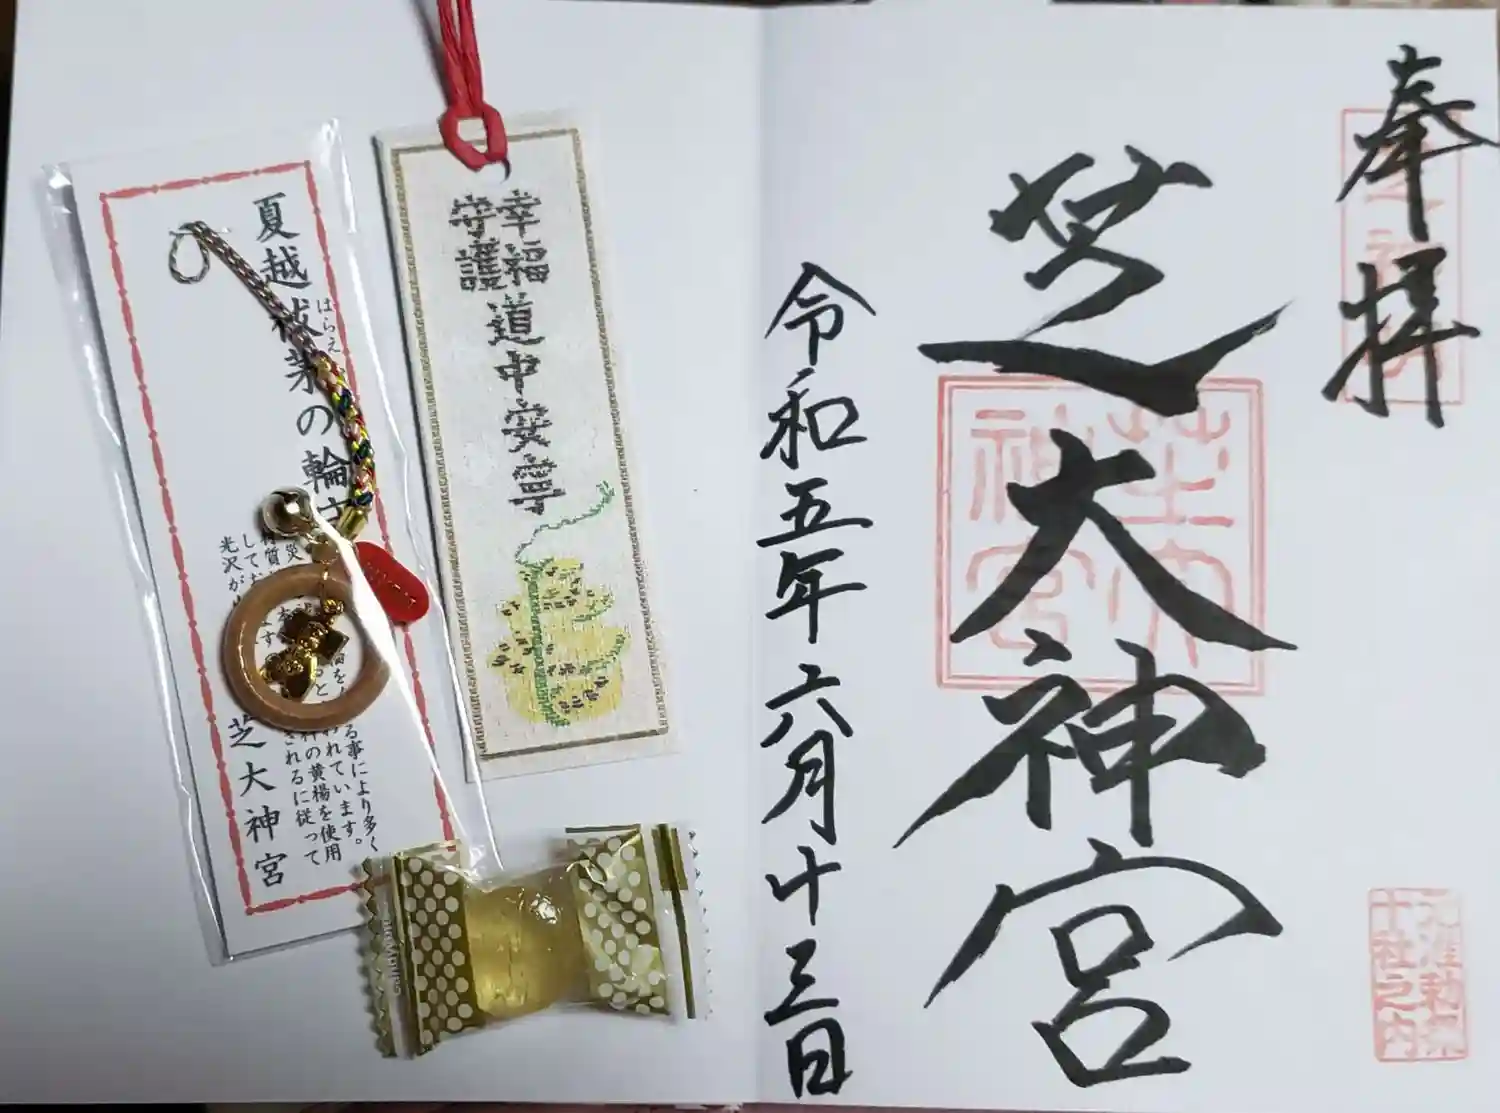 奉拝
芝大神宮
令和五年六月十三日
芝大神宮
元准勅祭
十社之内
幸福
守護
道中安全
夏越祓茅の輪守
はらえ
る事により多く
われています。
の黄楊を使用
されるに従って
光沢が
芝大神宮
candy